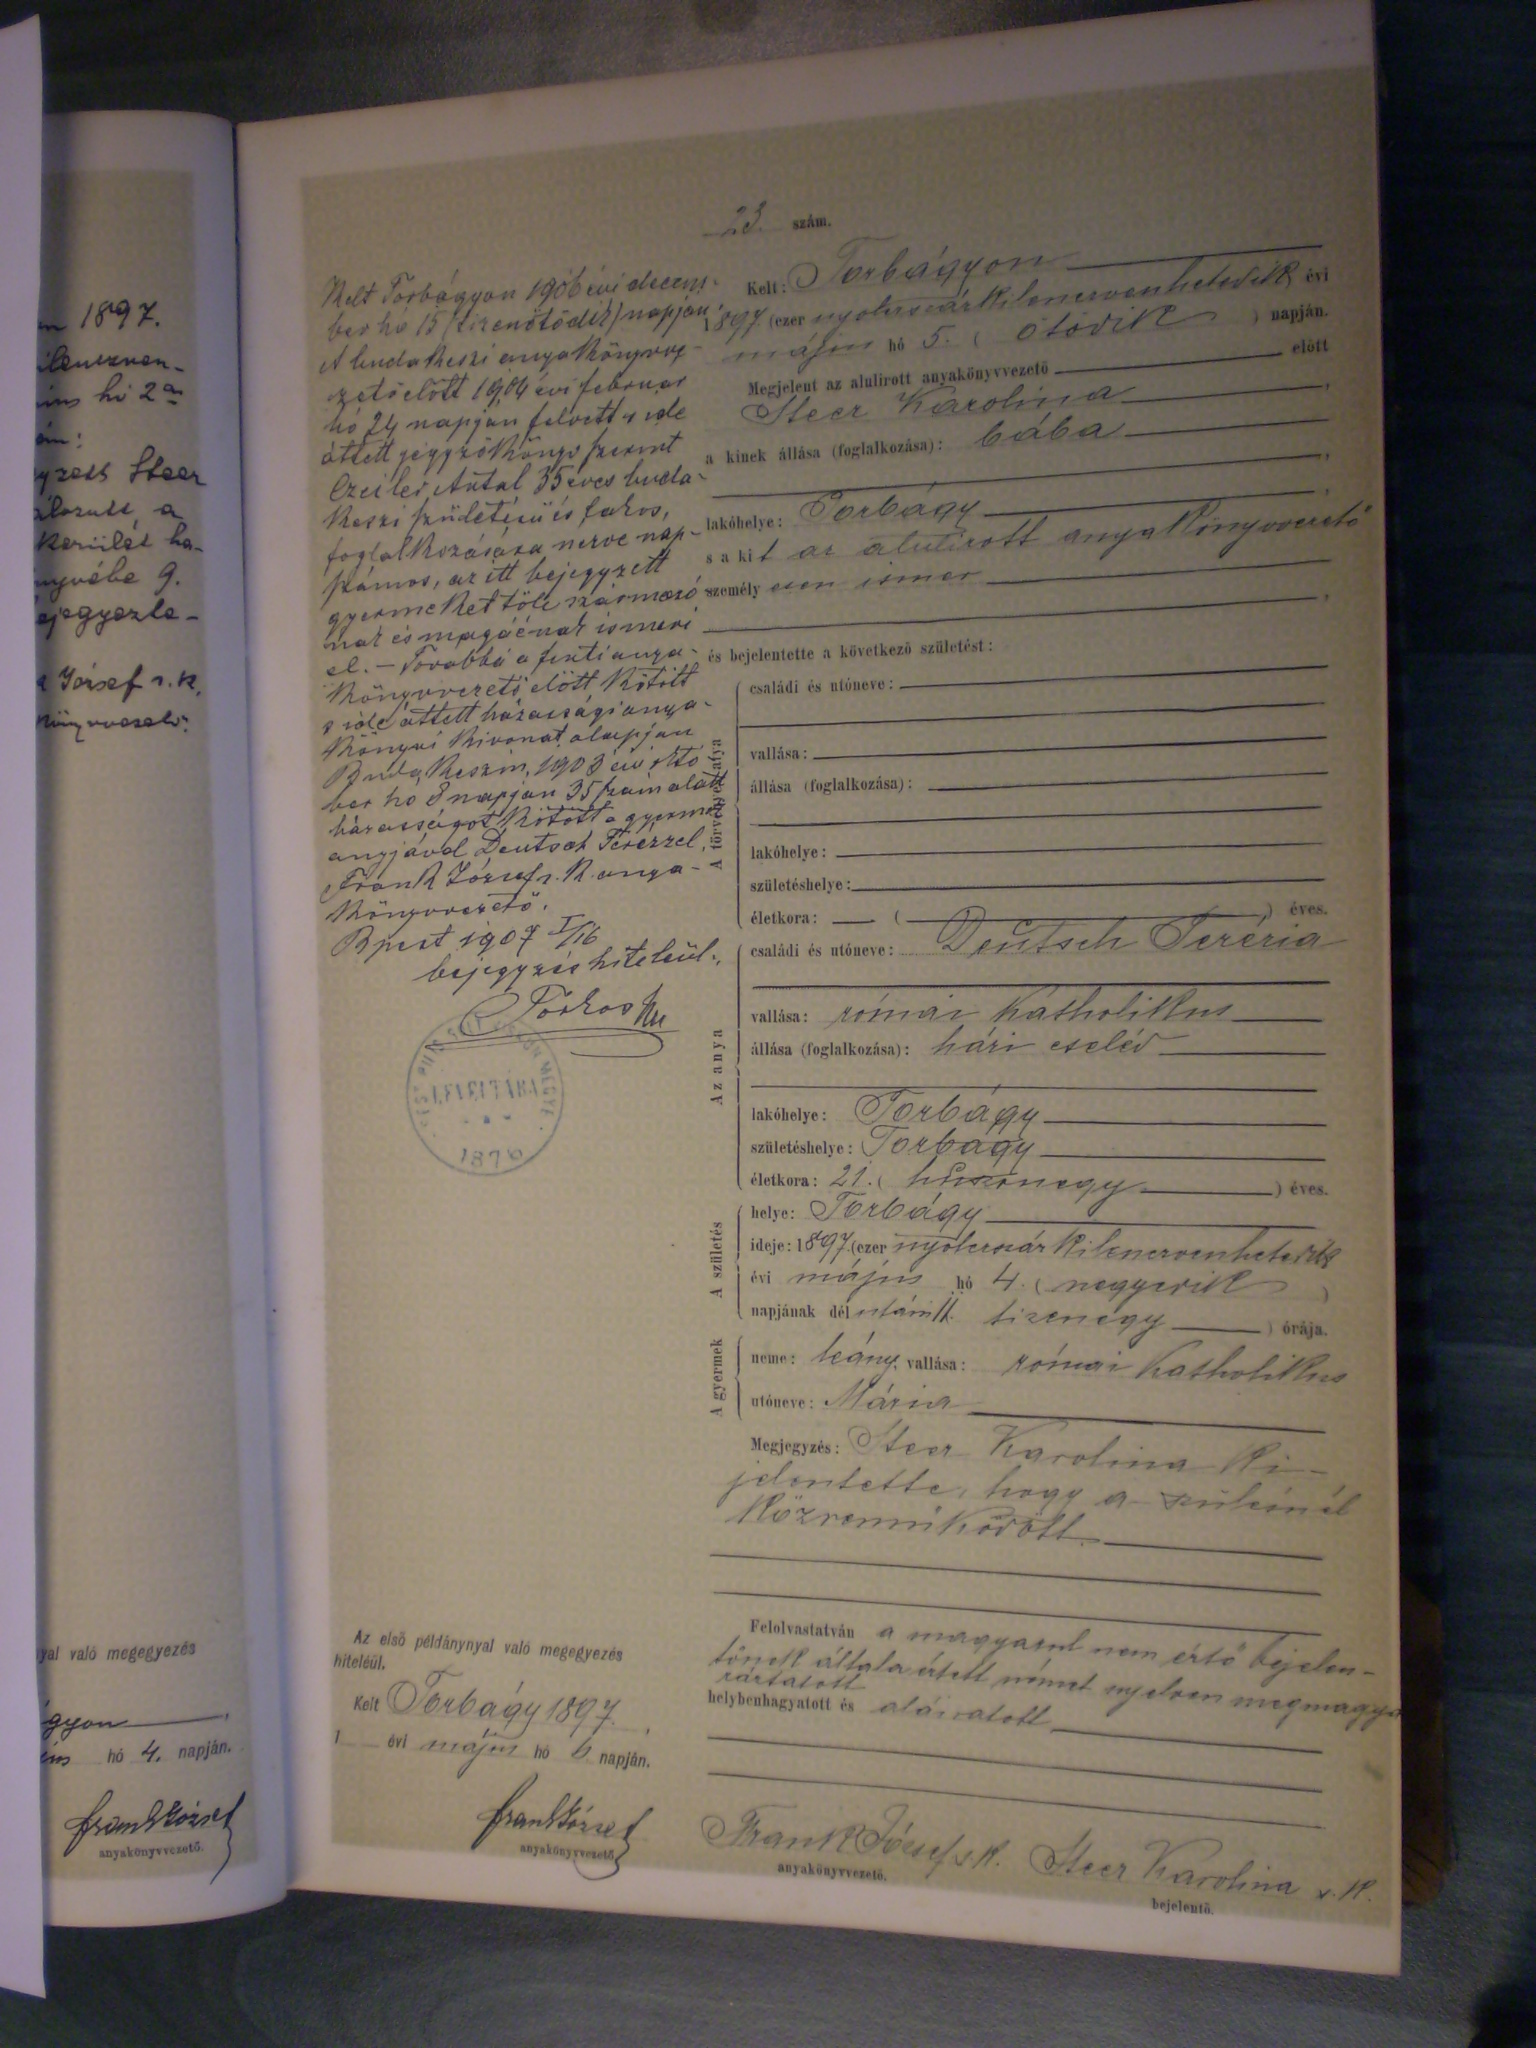 n 1897.
ilenczven-
hó 2án
yzett Steer
a
kerület ha-
nyvébe 9.
ejegyezte-
József s. k.
yal való megegyezés
gyon
hó 4. napján.
Frank József
anyakönyvvezető.
23. szám.
Kelt Torbágyon 1906 évi decem-
ber hó 15 (tizenötödik) napján
A budakeszi anyakönyvve-
zető előtt 1904 évi február
hó 24 napján felvett s ide
áttett jegyzőkönyv szerint
Czeiler Antal 35 éves buda-
keszi születésű és lakos,
foglalkozására nézve nap-
számos, az itt bejegyzett
gyermeket tőle származó
nak és magáénak ismeri
el. — Továbbá a fenti anya-
könyvvezető előtt kötött
s ide áttett házassági anya-
könyvi kivonat alapján
Budakeszin, 1903 évi októ
ber hó 8 napján 35 szám alatt
házasságot kötött a gyermek
anyjával Deutsch Terézzel.
Frank József s. k. anya-
könyvvezető.
Bpest 1907 I/16
bejegyzés hiteléül:
LEVÉLTÁRA
1876
Az első példánynyal való megegyezés
hiteléül.
Kelt Torbágy 1897.
1 évi május hó 6 napján.
Frank József
anyakönyvvezető.
Kelt: Torbágyon
1897. (ezer nyolczszázkilenczvenhetedik évi
május hó 5. ( ötödik ) napján.
Megjelent az alulirott anyakönyvvezető előtt
Steer Karolina,
a kinek állása (foglalkozása): bába
lakóhelye: Torbágy
s a kit az alulirott anyakönyvvezető
személyesen ismer
és bejelentette a következő születést:
A törvényes atya
családi és utóneve:
vallása:
állása (foglalkozása):
lakóhelye:
születéshelye:
életkora: — ( ) éves.
Az anya
családi és utóneve: Deutsch Terézia
vallása: római katholikus
állása (foglalkozása): házi cseléd
lakóhelye: Torbágy
születéshelye: Torbágy
életkora: 21. ( huszonegy ) éves.
A születés
helye: Torbágy
ideje: 1897. (ezer nyolczszázkilenczvenhetedik
évi május hó 4. ( negyedik )
napjának délután 11. tizenegy ) órája.
A gyermek
neme: leány, vallása: római katholikus
utóneve: Mária
Megjegyzés: Steer Karolina ki-
jelentette, hogy a szülésnél
közreműködött.
Felolvastatván a magyarul nem értő bejelen-
tőnek általa értett német nyelven megmagya
ráztatott
helybenhagyatott és aláiratott
Frank József s. k. Steer Karolina s. k.
anyakönyvvezető. bejelentő.